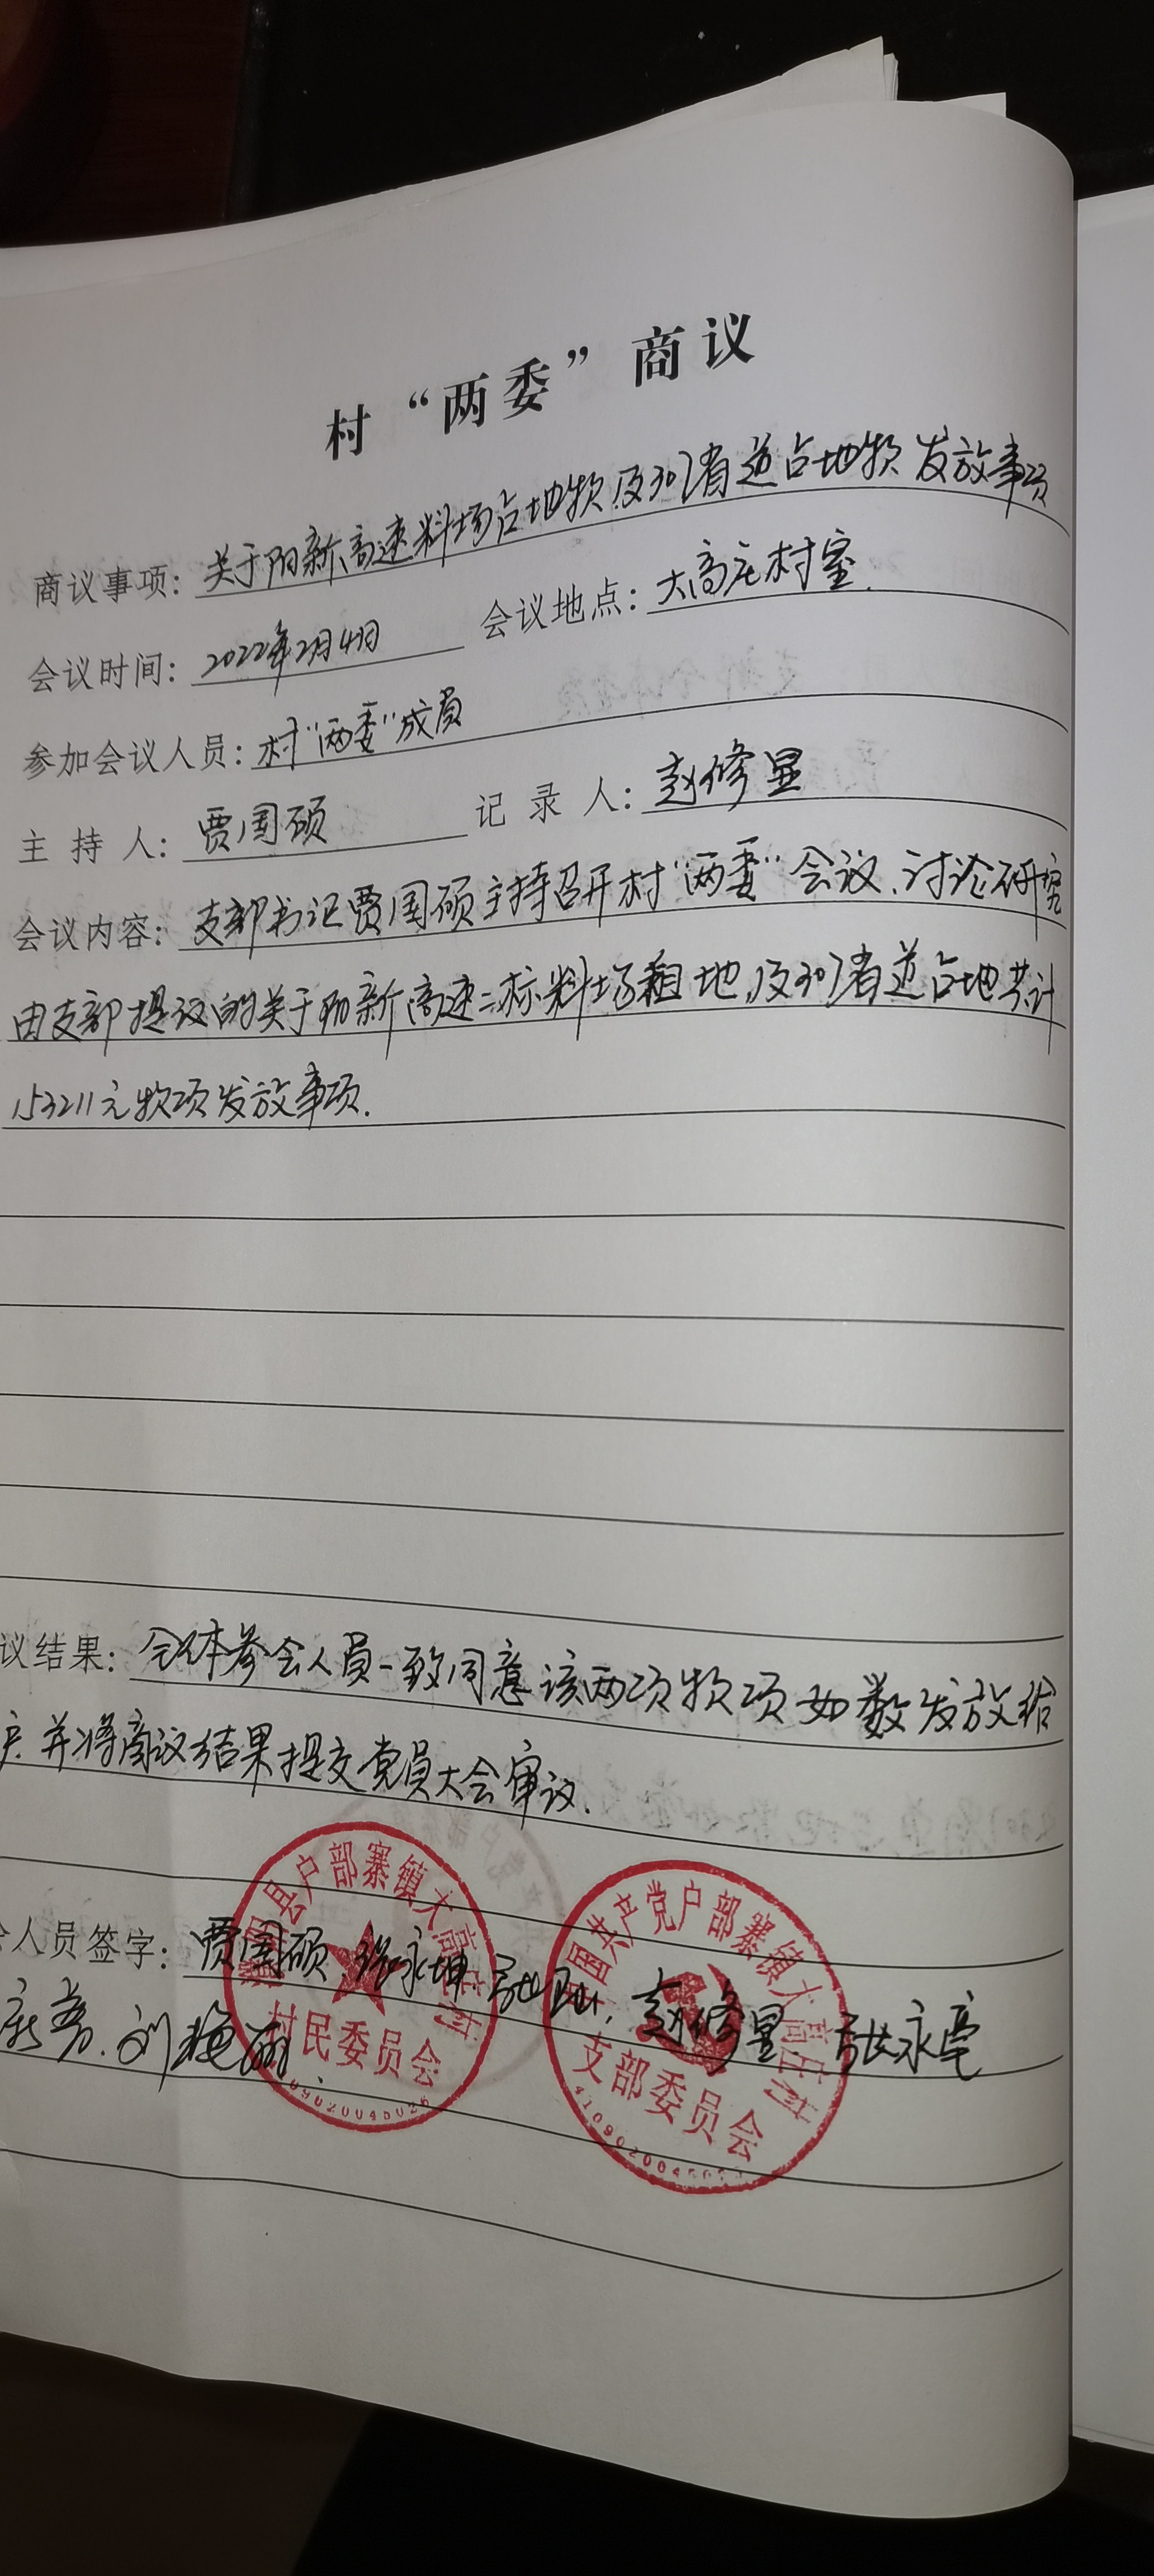 村“两委”商议
商议事项：关于阳新高速料场占地款及307省道占地款发放事项
会议时间：2022年2月4日 会议地点：大高庄村室.
参加会议人员：村“两委”成员
主持人：贾国硕 记录人：赵修显
会议内容：支部书记贾国硕主持召开村“两委”会议，讨论研究
由支部提议的关于阳新高速二标料场租地，及307省道占地共计
153211元款项发放事项.
议结果：全体参会人员一致同意该两项款项如数发放给
户.并将商议结果提交党员大会审议.
县户部寨镇大高庄村
村民委员会
中国共产党户部寨镇大高庄村
支部委员会
人员签字：贾国硕 张永坤 赵修显 张永亮
刘艳丽